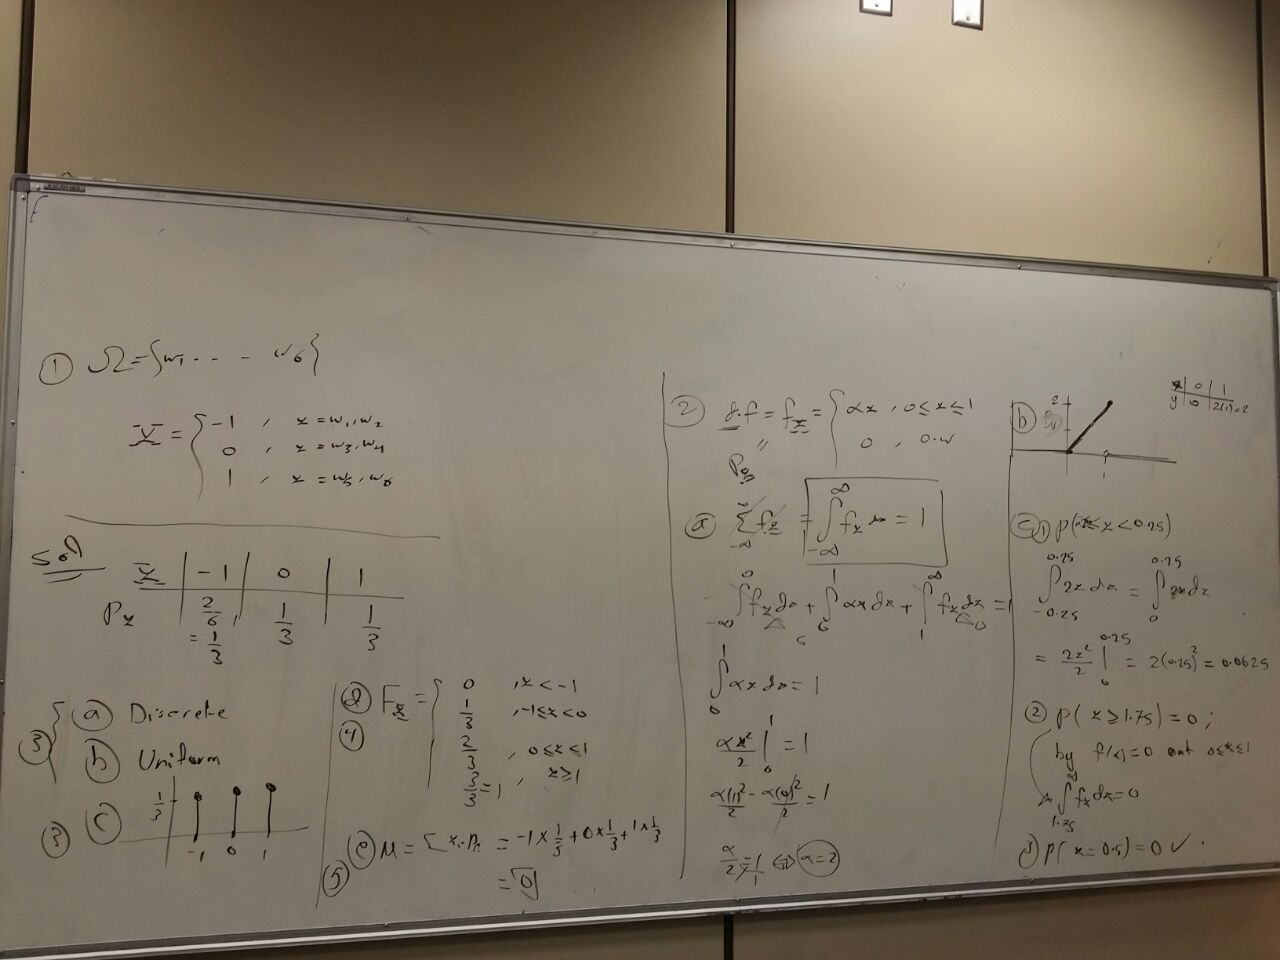 ① Ω = {w₁ . . . - w₆}
X = { -1 , x = w₁, w₂
0 , x = w₃, w₄
1 , x = w₅, w₆
X | -1 | 0 | 1
Pₓ | 2/6 = 1/3 | 1/3 | 1/3
③ ⓐ Discrete
ⓑ Uniform
③ ⓒ 1/3
-1 0 1
④ Fₓ = { 0 , x < -1
1/3 , -1 ≤ x < 0
2/3 , 0 ≤ x ≤ 1
3/3 = 1 , x ≥ 1
⑤ ⓔ M = Σ xᵢ · Pᵢ = -1 × 1/3 + 0 × 1/3 + 1 × 1/3
= 0
② fₓ = { αx , 0 ≤ x ≤ 1
" 0 , 0.w
Pₓ
ⓐ Σ fₓ = ∫_{-∞}^{∞} fₓ dx = 1
∫_{-∞}^{0} fₓ dx + ∫_{0}^{1} αx dx + ∫_{1}^{∞} fₓ dx = 1
∫_{0}^{1} αx dx = 1
αx²/2 |_{0}^{1} = 1
α(1)²/2 - α(0)²/2 = 1
α/2 = 1/1 ⇔ α = 2
ⓑ 2
1
x | 0 | 1
y | 0 | 2(1) = 2
ⓒ ① < x < 0.25)
∫_{-0.25}^{0.25} 2x dx = ∫_{0}^{0.25} 2x dx
= 2x²/2 |_{0}^{0.25} = 2(0.25)² = 0.0625
② P( x ≥ 1.75) = 0 ;
by f(x) = 0 out 0 ≤ x ≤ 1
∫_{1.75}^{∞} fₓ dx = 0
③ P( x = 0.5) = 0 ✓